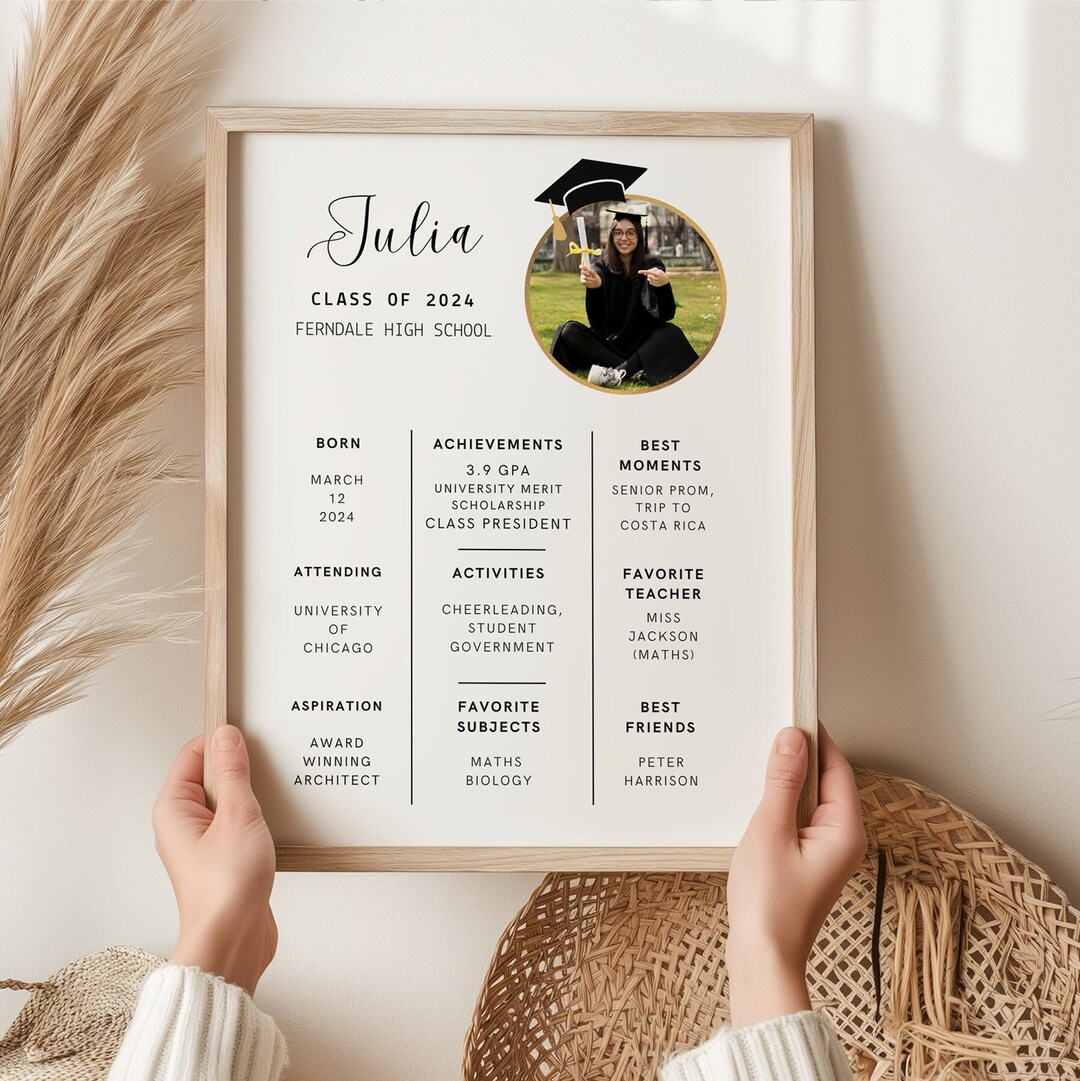 Julia
CLASS OF 2024
FERNDALE HIGH SCHOOL
BORN
MARCH
12
2024
ATTENDING
UNIVERSITY
OF
CHICAGO
ASPIRATION
AWARD
WINNING
ARCHITECT
ACHIEVEMENTS
3.9 GPA
UNIVERSITY MERIT
SCHOLARSHIP
CLASS PRESIDENT
ACTIVITIES
CHEERLEADING,
STUDENT
GOVERNMENT
FAVORITE
SUBJECTS
MATHS
BIOLOGY
BEST
MOMENTS
SENIOR PROM,
TRIP TO
COSTA RICA
FAVORITE
TEACHER
MISS
JACKSON
(MATHS)
BEST
FRIENDS
PETER
HARRISON